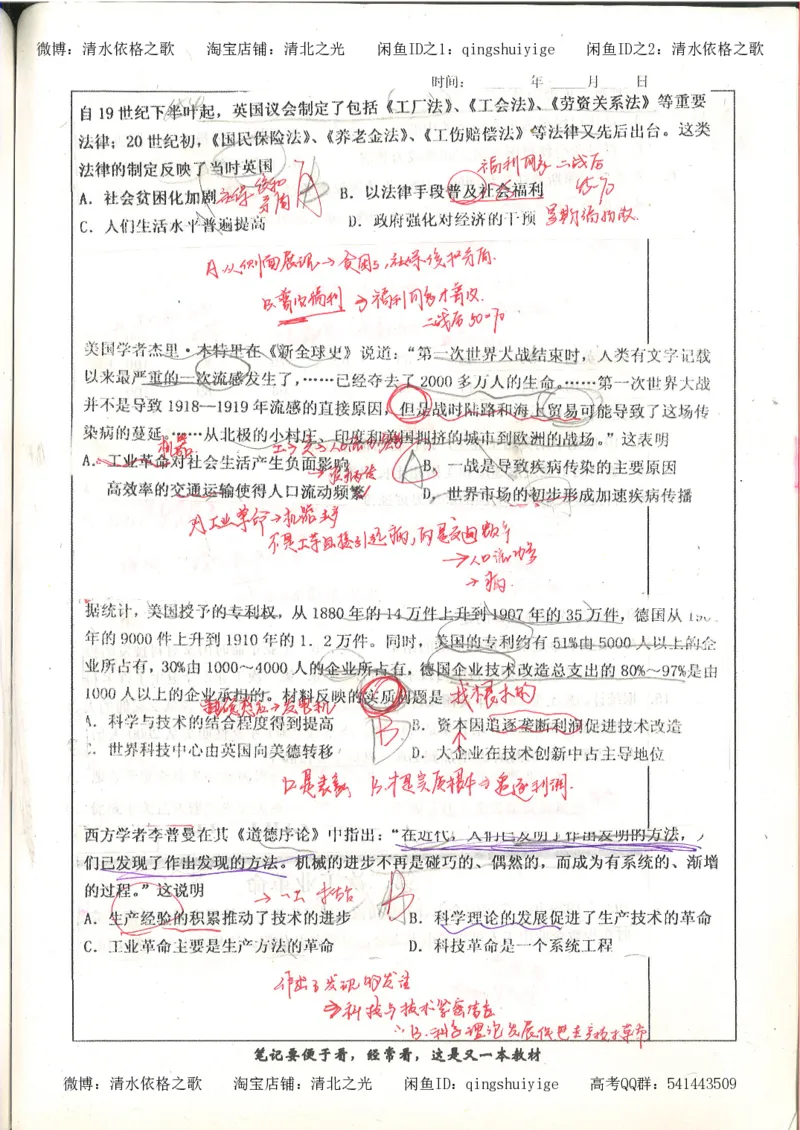 微博：清水依格之歌 淘宝店铺：清北之光 闲鱼ID之1：qingshuiyige 闲鱼ID之2：清水依格之歌
时间： 年 月 日
自19世纪下半叶起，英国议会制定了包括《工厂法》、《工会法》、《劳资关系法》等重要
法律；20世纪初，《国民保险法》、《养老金法》、《工伤赔偿法》等法律又先后出台。这类
法律的制定反映了当时英国
福利国家 二战后
A．社会贫困化加剧 B．以法律手段普及社会福利
社保缓和矛盾 A
C．人们生活水平普遍提高 D．政府强化对经济的干预
A从侧面展现→贫困，社保缓和矛盾.
B普及福利→福利国家才普及.
二战后50-70
美国学者杰里·本特里在《新全球史》说道：“第一次世界大战结束时，人类有文字记载
以来最严重的一次流感发生了，……已经夺去了2000多万人的生命。……第一次世界大战
并不是导致1918—1919年流感的直接原因，但是战时陆路和海上贸易可能导致了这场传
染病的蔓延。……从北极的小村庄、印度和美国拥挤的城市到欧洲的战场。”这表明
机器
A．工业革命对社会生活产生负面影响 B．一战是导致疾病传染的主要原因
高效率的交通运输使得人口流动频繁 D．世界市场的初步形成加速疾病传播
A工业革命→机器生产
→人口流动多
→病.
据统计，美国授予的专利权，从1880年的14万件上升到1907年的35万件，德国从
年的9000件上升到1910年的1．2万件。同时，美国的专利约有51%由5000人以上的企
业所占有，30%由1000～4000人的企业所占有，德国企业技术改造总支出的80%～97%是由
1000人以上的企业承担的。材料反映的实质问题是 找根本的
电磁感应→发电机
A．科学与技术的结合程度得到提高 B．资本因追逐垄断利润促进技术改造
B
C．世界科技中心由英国向美德转移 D．大企业在技术创新中占主导地位
D是表象 B才是实质根本→追逐利润.
西方学者李普曼在其《道德序论》中指出：“在近代，人们已发明了作出发明的方法，人
们已发现了作出发现的方法。机械的进步不再是碰巧的、偶然的，而成为有系统的、渐增
的过程。”这说明
B
A．生产经验的积累推动了技术的进步 B．科学理论的发展促进了生产技术的革命
C．工业革命主要是生产方法的革命 D．科技革命是一个系统工程
作出了发现的方法
→科技与技术紧密结合
笔记要便于看，经常看，这是又一本教材
微博：清水依格之歌 淘宝店铺：清北之光 闲鱼ID之1：qingshuiyige 高考QQ群：541443509